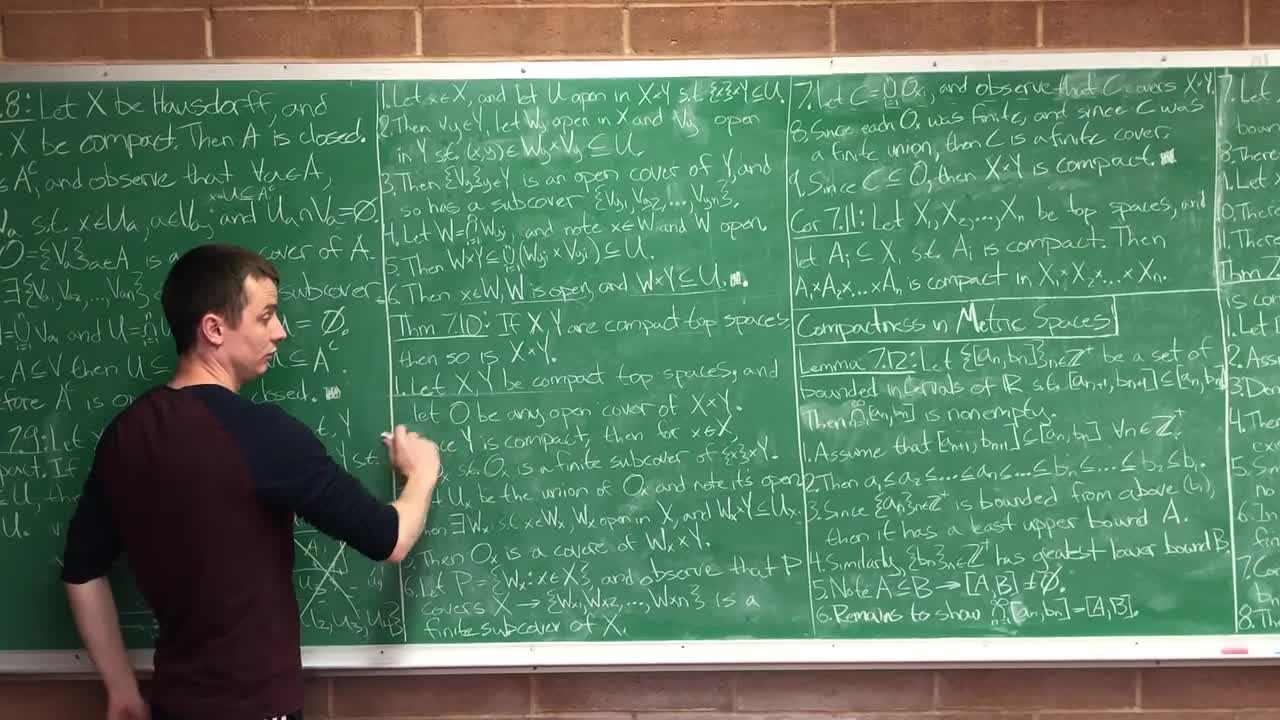 .8: Let X be Hausdorff, and
X be compact. Then A is closed.
∈ Aᶜ, and observe that ∀a∈A,
x∈U⊆Aᶜ
s.t. x∈Uₐ, a∈Vₐ; and Uₐ∩Vₐ=∅.
O={Vₐ}a∈A is a cover of A.
∃{Va₁, Va₂, ..., Vaₙ} subcover
Vₐ and U= = ∅.
A⊆V then U⊆ ⊆Aᶜ.
Aᶜ is closed.
7.9: Let t, Y
pact. If Y s.t.
U.
U₂, U₃, U₄
1. Let x∈X, and let U open in X×Y s.t. {x}×Y⊆U.
2. Then ∀y∈Y, let Wy open in X and Vy open
in Y s.t. (x,y)∈Wy×Vy⊆U.
3. Then {Vy}y∈Y is an open cover of Y, and
so has a subcover {Vy₁, Vy₂, ..., Vyₙ}.
4. Let W=∩Wyᵢ, and note x∈W and W open.
5. Then W×Y⊆∪(Wyᵢ×Vyᵢ)⊆U.
6. Then x∈W, W is open, and W×Y⊆U.
Thm 7.10: If X Y are compact top spaces
then so is X×Y.
1. Let X Y be compact top spaces, and
let O be any open cover of X×Y.
Y is compact, then for x∈X,
s.t. Oₓ is a finite subcover of {x}×Y.
Uₓ be the union of Oₓ and note its open
∃Wₓ s.t. x∈Wₓ, Wₓ open in X, and Wₓ×Y⊆Uₓ.
5. Then Oₓ is a covere of Wₓ×Y.
6. Let P={Wₓ: x∈X}, and observe that P
covers X → {Wx₁, Wx₂, ..., Wxₙ} is a
finite subcover of X.
7. Let C=∪Oxᵢ, and observe that C covers X×Y.
8. Since each Oₓ was finite, and since C was
a finite union, then C is a finite cover.
9. Since C⊆O, then X×Y is compact.
Cor 7.11: Let X₁, X₂, ..., Xₙ be top spaces, and
let Aᵢ⊆Xᵢ s.t. Aᵢ is compact. Then
A₁×A₂×...×Aₙ is compact in X₁×X₂×...×Xₙ.
Compactness in Metric Spaces
Lemma 7.12: Let {[aₙ,bₙ]}n∈ℤ⁺ be a set of
bounded intervals of ℝ s.t. [aₙ₊₁,bₙ₊₁]⊆[aₙ,bₙ]
Then ∩[aₙ,bₙ] is nonempty.
1. Assume that [aₙ₊₁,bₙ₊₁]⊆[aₙ,bₙ] ∀n∈ℤ⁺.
2. Then a₁≤a₂≤...≤aₙ≤...≤bₙ≤...≤b₂≤b₁.
3. Since {aₙ}n∈ℤ⁺ is bounded from above (b₁),
then it has a least upper bound A.
4. Similarly, {bₙ}n∈ℤ⁺ has greatest lower bound B.
5. Note A≤B → [A,B]≠∅.
6. Remains to show ∩[aₙ,bₙ]=[A,B].
7. Let
boun
8. There
9. Let x
10. There
11. There
Thm 7
is com
1. Let
2. Assu
3. Den
4. The
ex
5. Sin
no
6. In
fin
7. Co
bn
8. Th